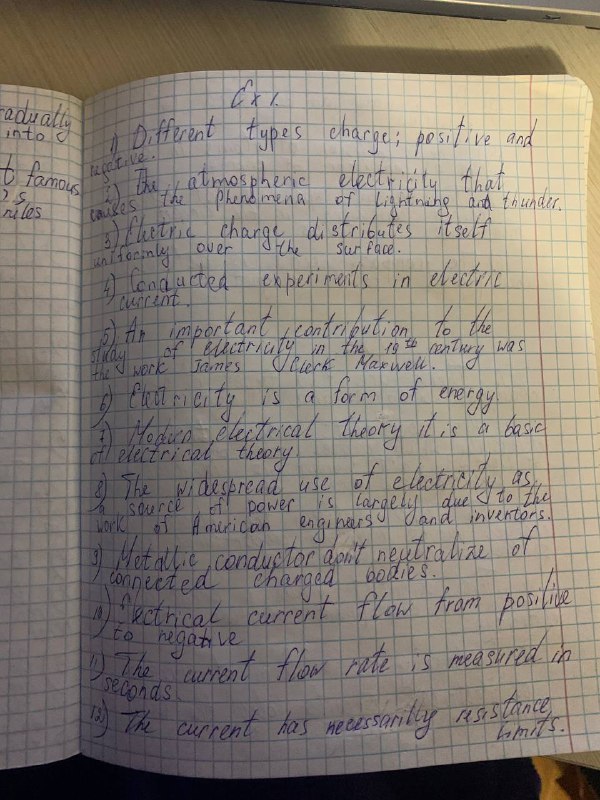 radually
into
famous
's
rules
Ex 1.
1) Different types charge; positive and
negative.
2) The atmospheric electricity that
causes the phenomena of lightning and thunder.
3) Electric charge distributes itself
uniformly over the surface.
4) Conducted experiments in electric
current.
5) An important contribution to the
study of electricity in the 19th century was
the work James Clerk Maxwell.
6) Electricity is a form of energy.
7) Modern electrical theory it is a basic
of electrical theory
8) The widespread use of electricity as
a source of power is largely due to the
work of American engineers and inventors.
9) Metallic conductor don't neutralize of
connected charged bodies.
10) Electrical current flow from positive
to negative
11) The current flow rate is measured in
seconds.
12) The current has necessarilly resistance
limits.